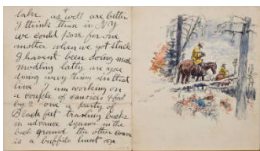 lake as well are better
I think than in N.Y.
we could pass for one
another when we got stuck
I havent been doing much
modling latly are you
doing any thing in that
line I am working on
a couple of canvises
one a party of
Black feet trading
in advance
back ground the other one
is a buffalo hunt on